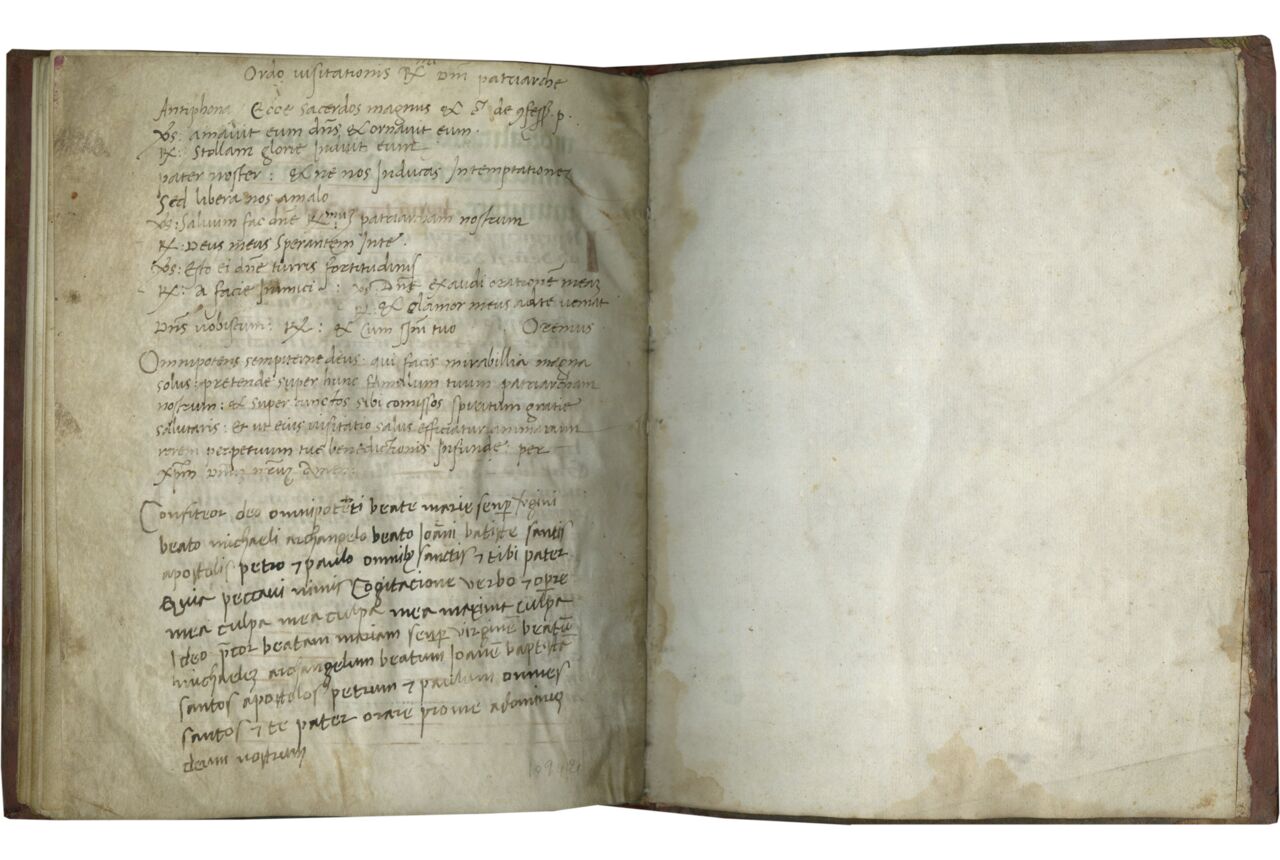 Ordo visitationis Rmi dni patriarche
Antiphona Ecce sacerdos magnus & c̄ de 9fess. p.
vs: amavit eum dn̄s & ornavit eum.
R: Stollam glorie Induit eum
pater noster: & ne nos Inducas Intemptationez
Sed libera nos amalo
vs: Salvum fac dn̄e Rmuz patriarcham nostrum
R: Deus meus Sperantem Inte.
vs: Esto ei dn̄e turris fortitudinis
R: A facie Inimici: vs Dn̄e exaudi orationē meaz
R: & clamor meus adte veniat
Dn̄s vobiscum: R: & Cum spū tuo Oremus
Omnipotens sempiterne deus: qui facis mirabillia magna
solus: pretende super hunc famulum tuum patriarcham
nostrum: & super cunctos sibi comissos spiritum gratie
salutaris: Et ut eius visitatio salus efficiatur animarum
rorem perpetuum tue benedictionis Infunde: per
xpm̄ dnuz nr̄uz Amen:
Confiteor deo omnipotēti beate marie senp̄ v̄gini
beato michaeli archangelo beato Ioāni batiste santis
apostolis petro 7 paulo omnibz sanctis 7 tibi pater
Quia peccavi nimis Cogitacione verbo 7 opre
mea culpa mea culpa mea maxima culpa
Ideo p̄cor beatam mariam senp̄ virginē beatū
michaelez archangelum beatum Ioanē baptistā
santos apostolos petrum 7 paulum omnes
santos 7 te pater orare prome adominuz
deum nostrum